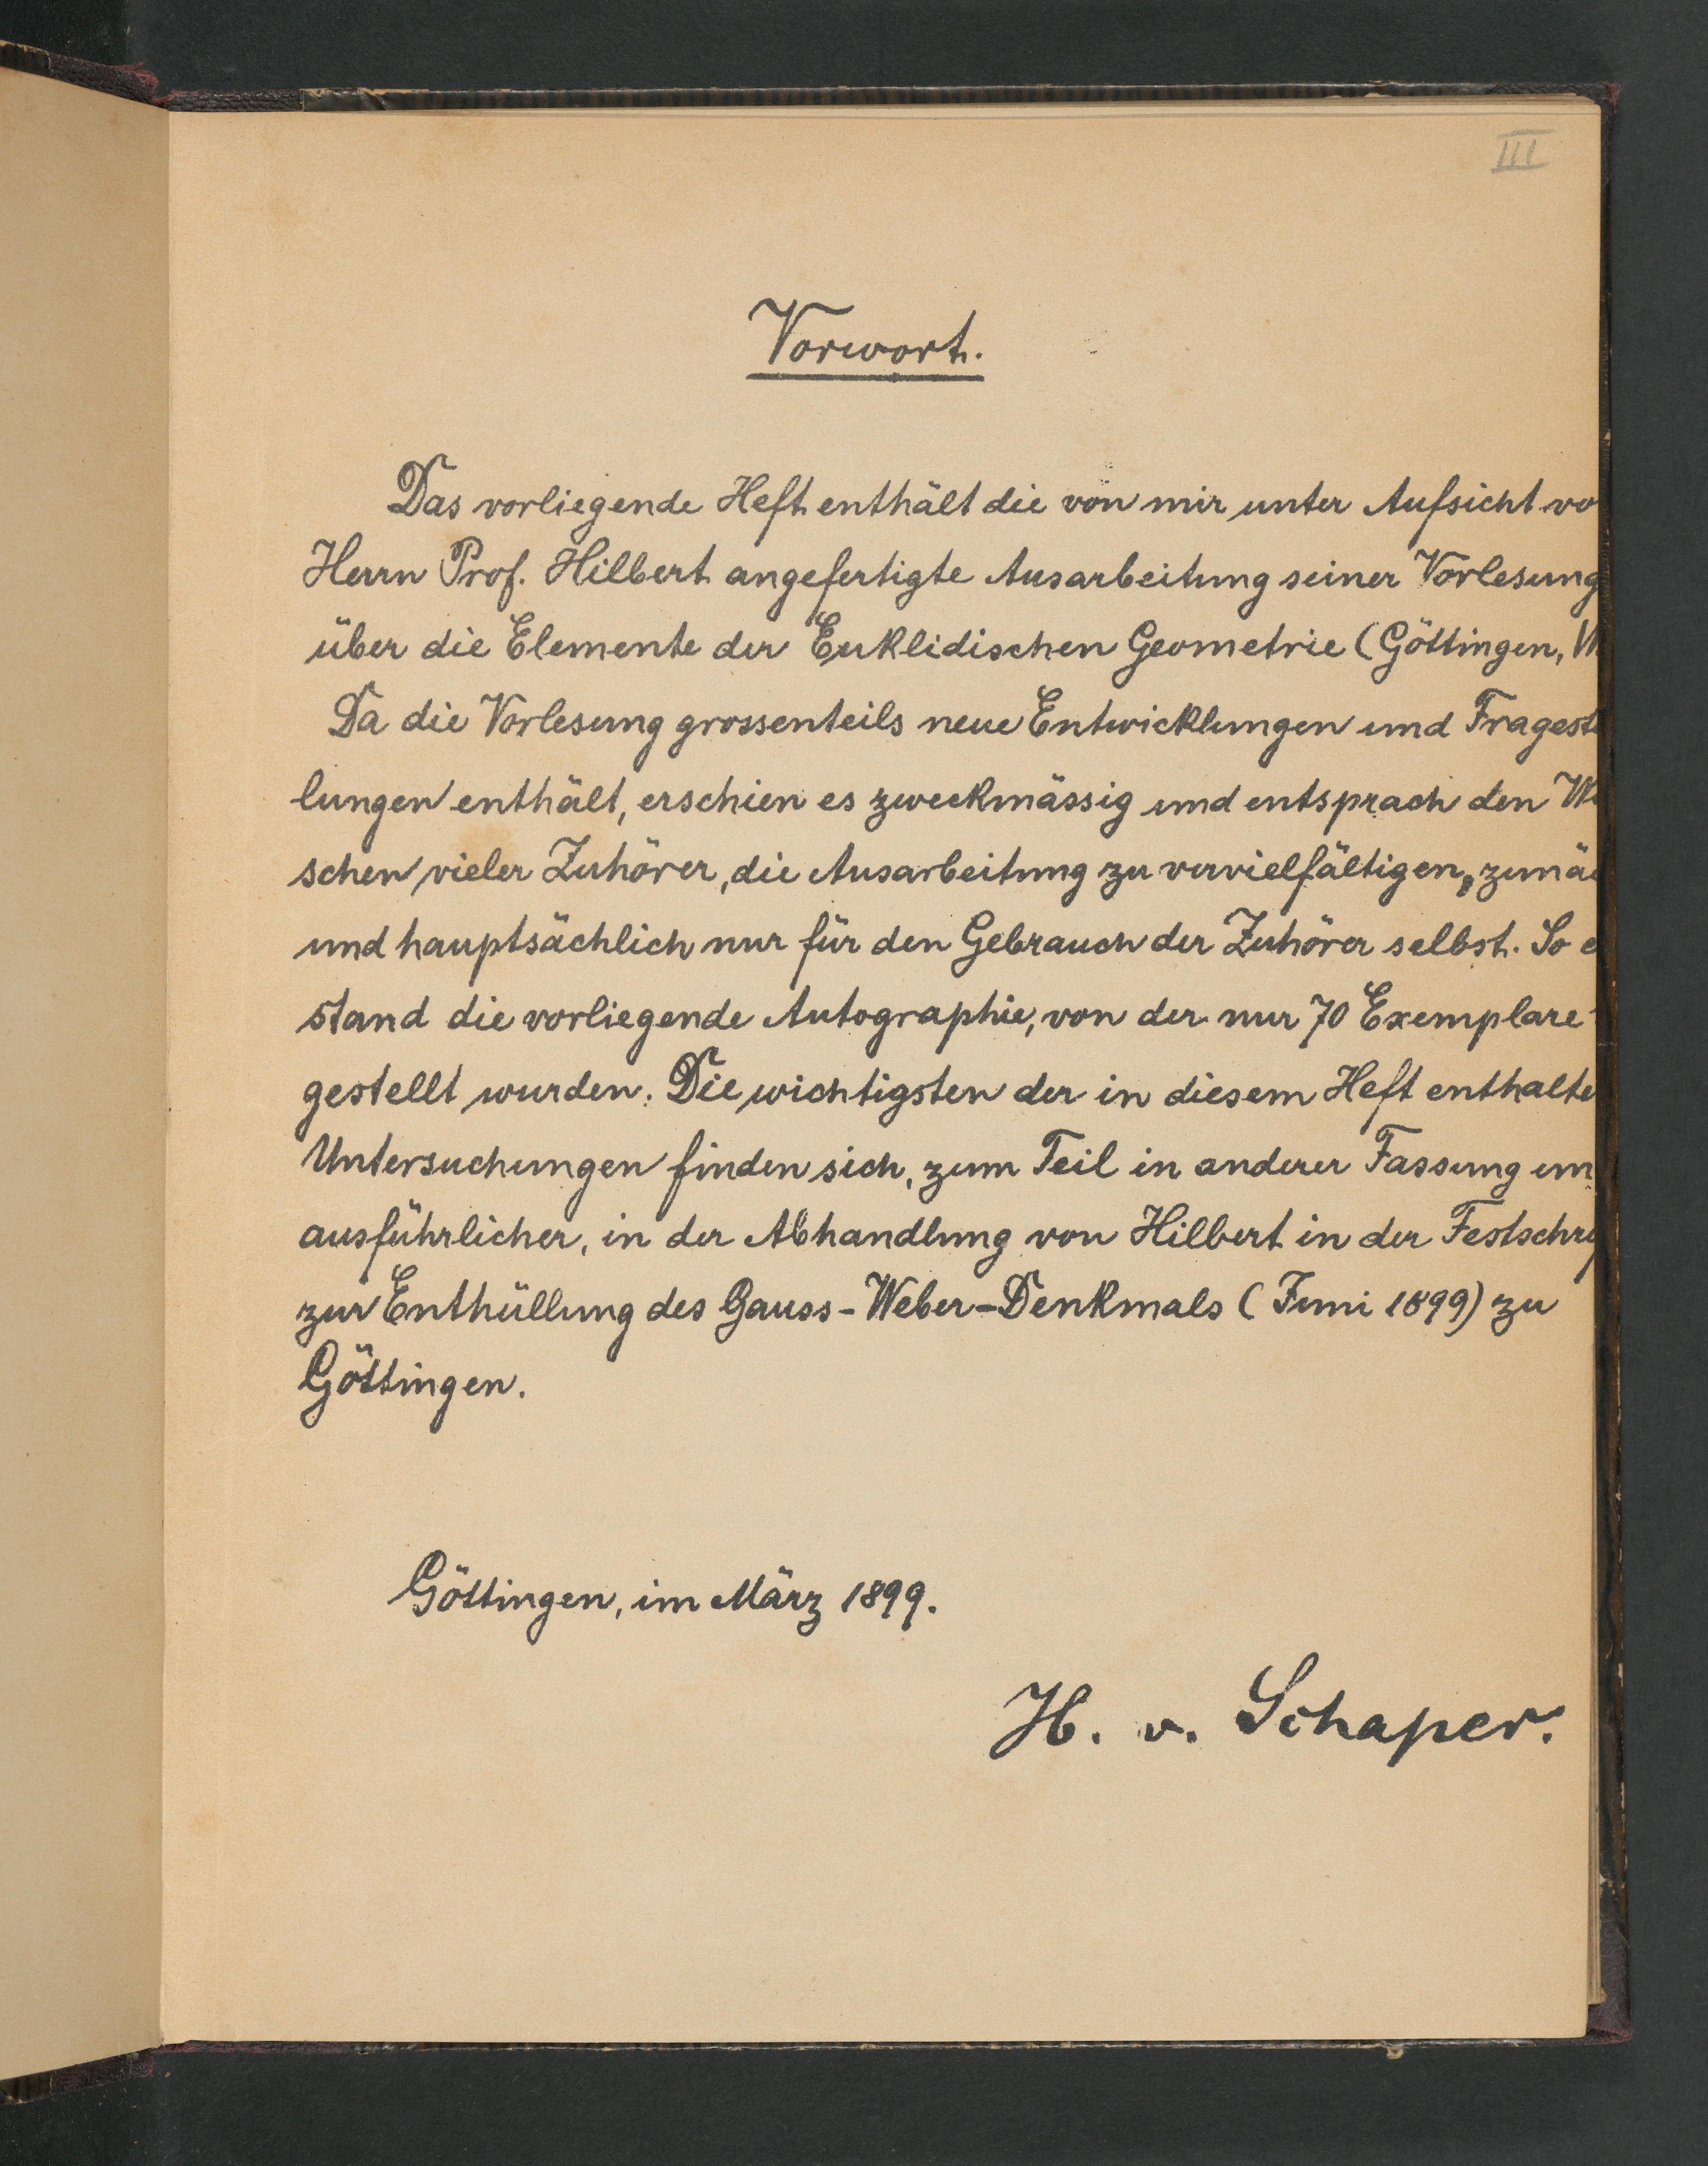 III
Vorwort.
Das vorliegende Heft enthält die von mir unter Aufsicht vo
Herrn Prof. Hilbert angefertigte Ausarbeitung seiner Vorlesung
über die Elemente der Euklidischen Geometrie (Göttingen, W
Da die Vorlesung grossenteils neue Entwicklungen und Fragest
lungen enthält, erschien es zweckmässig und entsprach den W
schen vieler Zuhörer, die Ausarbeitung zu vervielfältigen, zunä
und hauptsächlich nur für den Gebrauch der Zuhörer selbst. So e
stand die vorliegende Autographie, von der nur 70 Exemplare
gestellt wurden. Die wichtigsten der in diesem Heft enthalte
Untersuchungen finden sich, zum Teil in anderer Fassung un
ausführlicher, in der Abhandlung von Hilbert in der Festschri
zur Enthüllung des Gauss-Weber-Denkmals (Juni 1899) zu
Göttingen.
Göttingen, im März 1899.
H. v. Schaper.